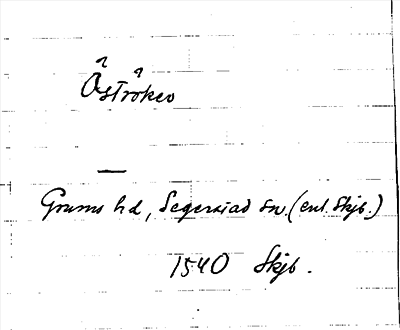 Åströken
—
Grums hd, Segerstad sn. (enl. Skjb.)
1540 Skjb.